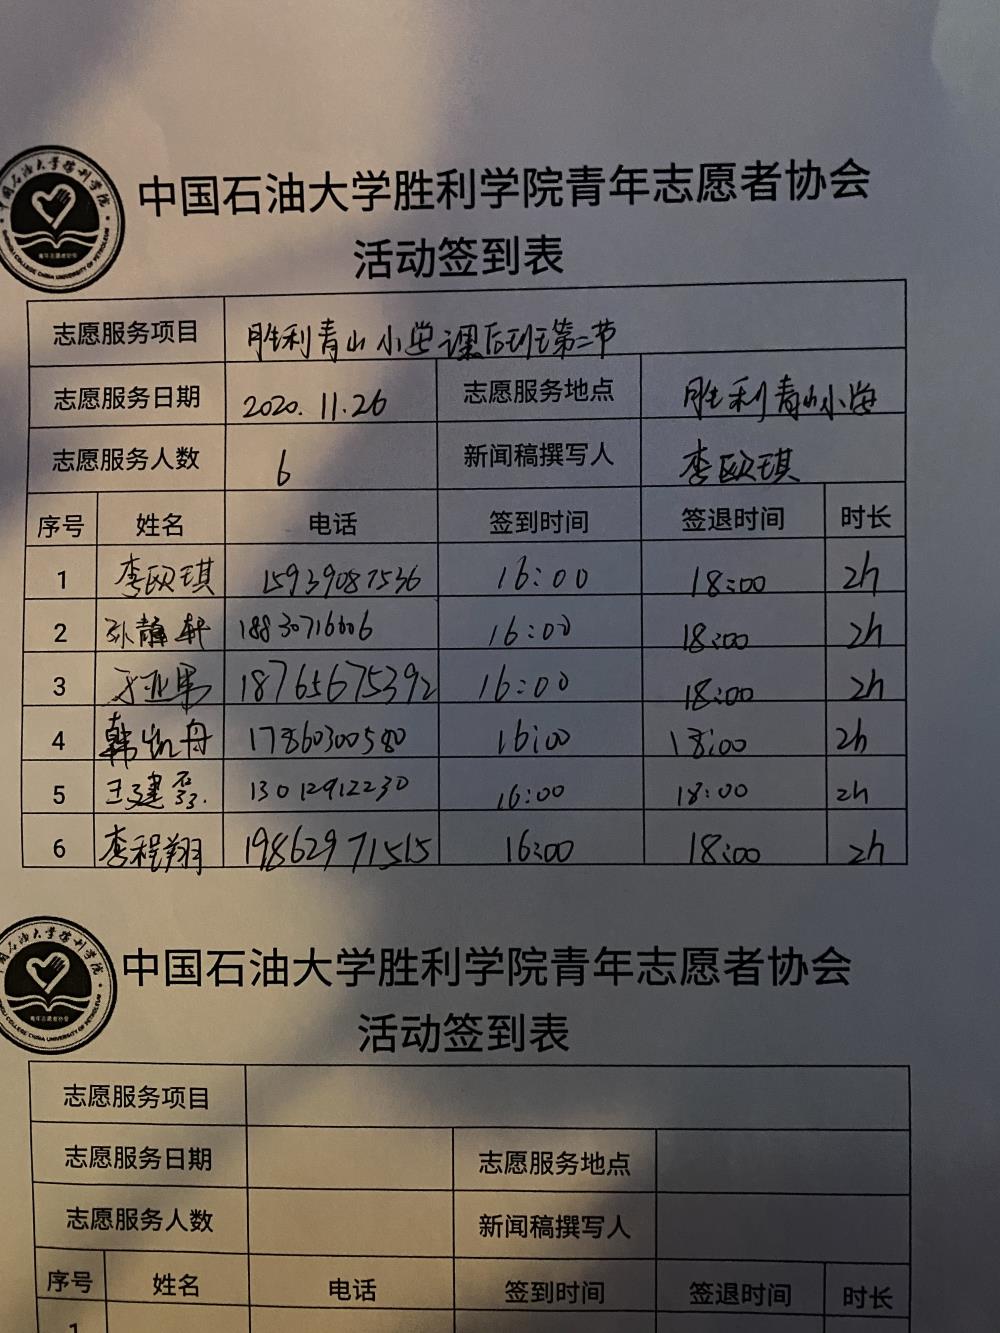 中国石油大学胜利学院青年志愿者协会
活动签到表
志愿服务项目 胜利青山小学课后班第二节
志愿服务日期 2020.11.26 志愿服务地点 胜利青山小学
志愿服务人数 6 新闻稿撰写人 李欧琪
序号 姓名 电话 签到时间 签退时间 时长
1 李欧琪 15939087536 16:00 18:00 2h
2 孙静轩 18830716606 16:00 18:00 2h
3 18765675392 16:00 18:00 2h
4 韩凯舟 17860300580 16:00 18:00 2h
5 王建磊 13012912230 16:00 18:00 2h
6 李程翔 19862971515 16:00 18:00 2h
中国石油大学胜利学院青年志愿者协会
活动签到表
志愿服务项目
志愿服务日期 志愿服务地点
志愿服务人数 新闻稿撰写人
序号 姓名 电话 签到时间 签退时间 时长
1